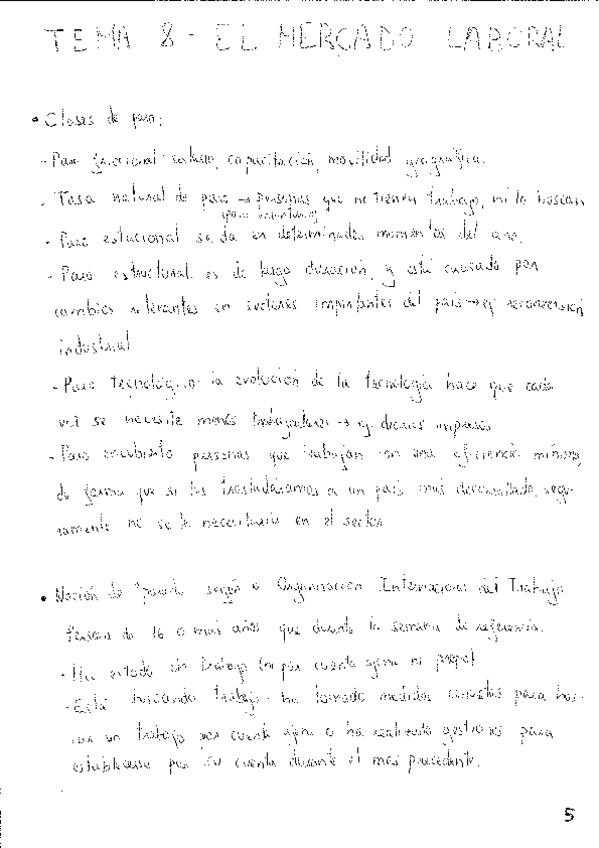 TEMA 8 - EL MERCADO LABORAL
• Clases de paro:
- Paro friccional: salario, capacitación, movilidad geográfica.
- Tasa natural de paro → personas que no tienen trabajo, ni lo buscan
(paro voluntario)
- Paro estacional se da en determinados momentos del año.
- Paro estructural es de larga duración, y está causado por
cambios relevantes en sectores importantes del país → ej reconversión
industrial
- Paro tecnológico: la evolución de la tecnología hace que cada
vez se necesite menos trabajadores → ej
- Paro encubierto personas que trabajan con una eficiencia mínima,
de forma que si los trasladáramos a un país más desarrollado, segu-
ramente no se le necesitaría en el sector
• Noción de "parado" según Organización Internacional del Trabajo
Persona de 16 o más años que durante la semana de referencia.
- Ha estado sin trabajo (ni por cuenta ajena ni propia)
- Está buscando trabajo ha tomado medidas concretas para bus-
car un trabajo por cuenta ajena o ha realizado gestiones para
establecerse por su cuenta durante el mes precedente.
5